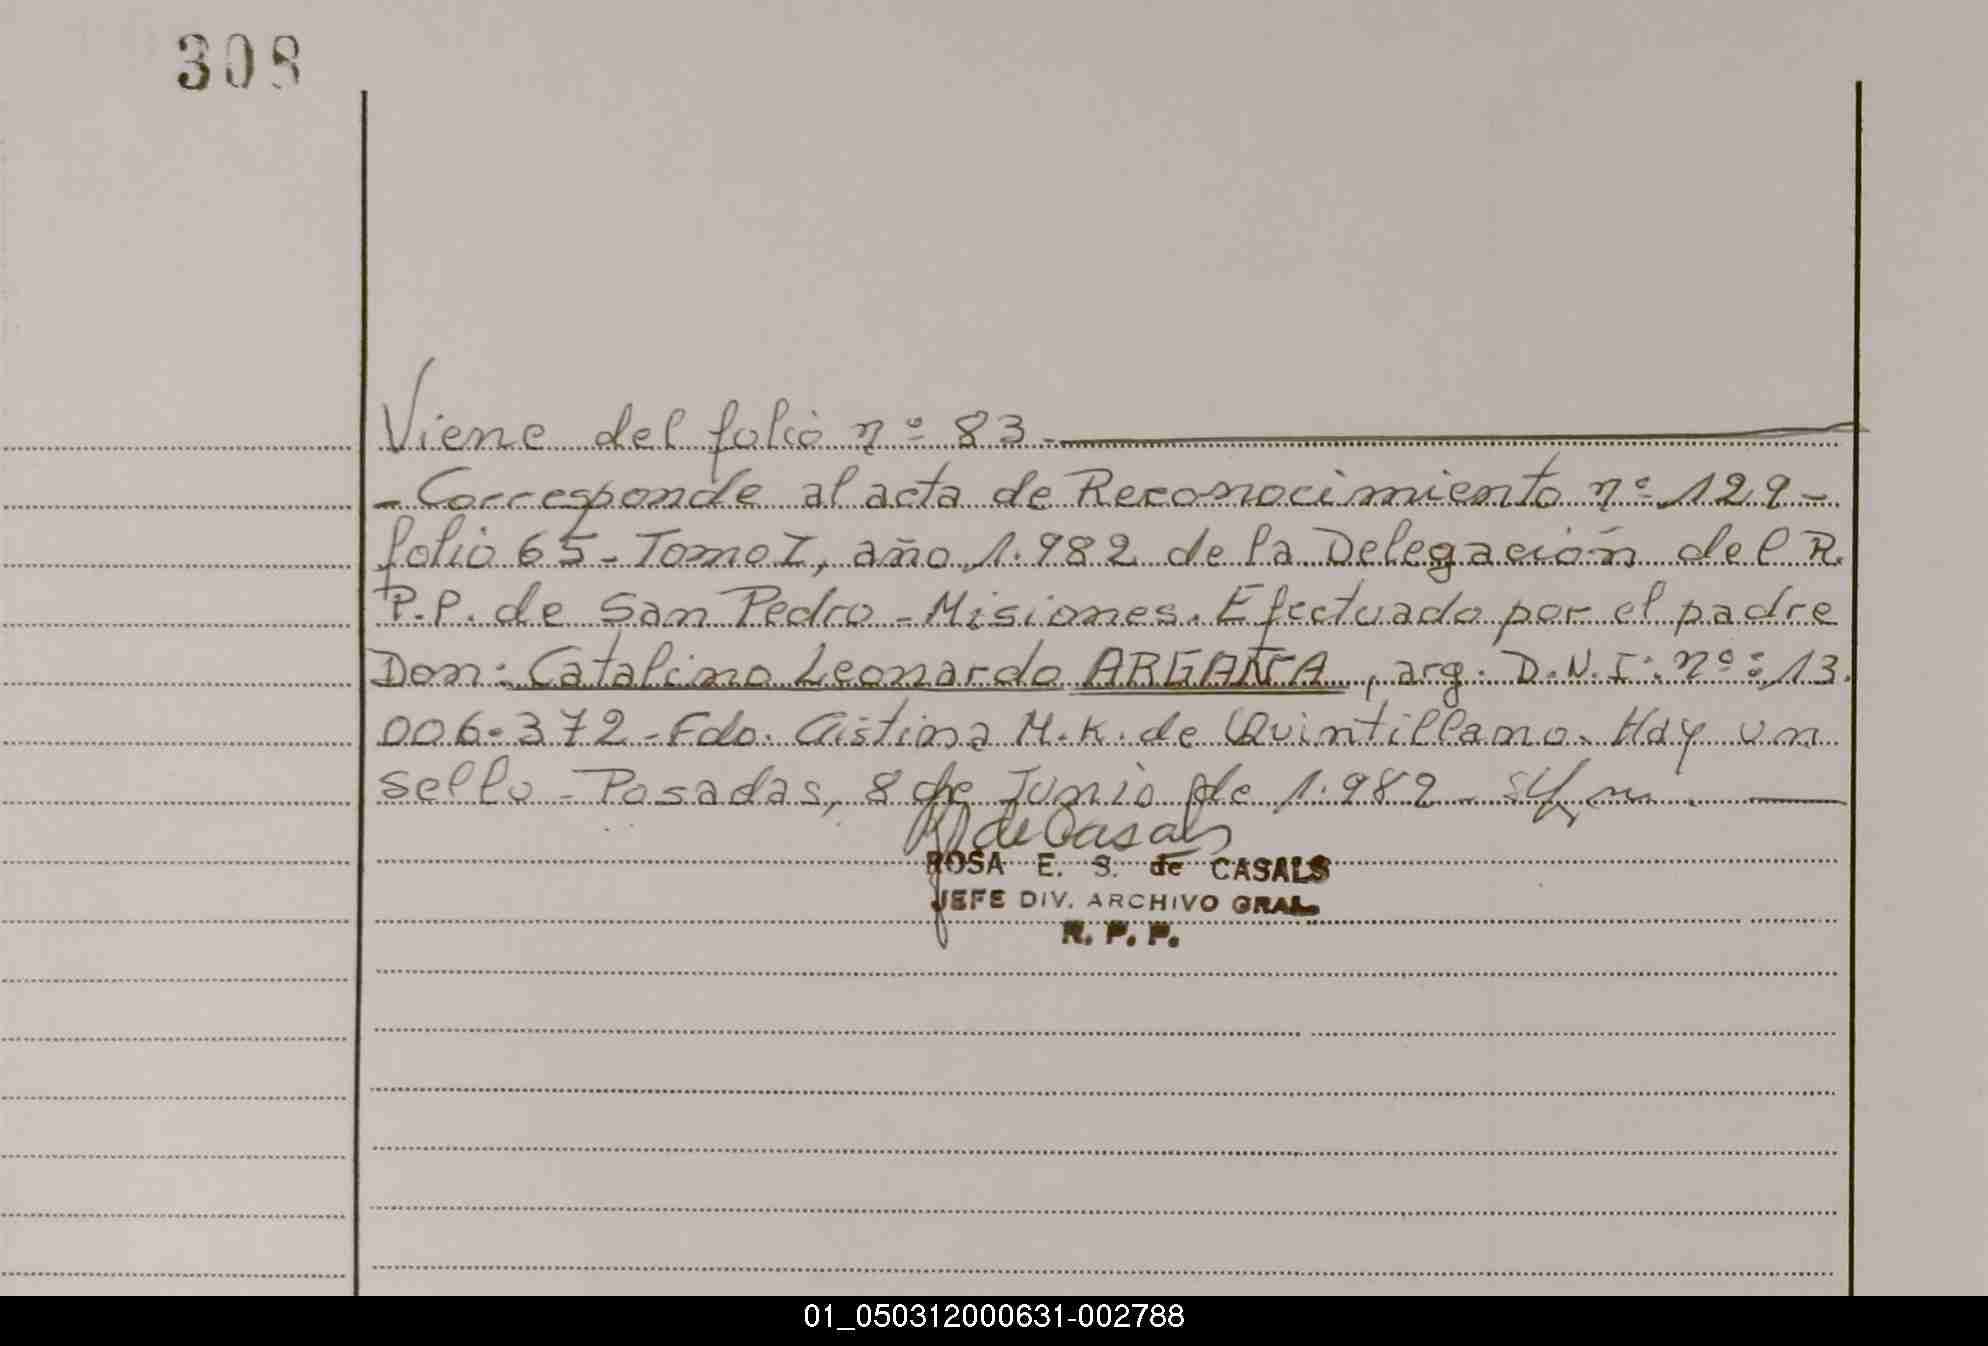 308
Viene del folio nº 83.
- Corresponde al acta de Reconocimiento nº 129 -
folio 65 - Tomo I, año 1.982 de la Delegación del R.
P.P. de San Pedro - Misiones. Efectuado por el padre
Don: Catalino Leonardo ARGAÑA, arg. D.N.I: nº: 13.
006.372 - Fdo. Cristina M.K. de Quintillano. Hay un
sello - Posadas, 8 de Junio de 1.982 -
de Casals
ROSA E. S. de CASALS
JEFE DIV. ARCHIVO GRAL.
R. P. P.
01_050312000631-002788